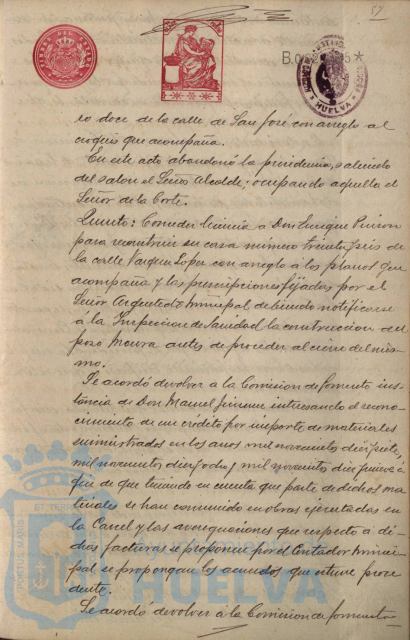 57
HUELVA
ro doce de la calle de San José con arreglo al
croquis que acompaña.
En este acto abandonó la presidencia, saliendo
del salon el Señor Alcalde; ocupando aquella el
Señor de la Corte.
Quinto: Conceder licencia a Don Enrique
para reconstruir su casa número treinta y seis de
la calle Vazquez Lopez con arreglo á los planos que
acompaña y las prescripciones fijadas por el
Señor Arquitecto Municipal debiendo notificarse
á la Inspeccion de Sanidad la construccion del
pozo Moura antes de proceder al cierre del mis-
mo.
Se acordó devolver a la Comision de fomento ins-
tancia de Don Manuel Jimenez interesando el recono-
cimiento de un crédito por importe de materiales
suministrados en los anos mil novecientos diez y siete,
mil novecientos diez y ocho y mil novecientos diez y nueve á
fin de que teniendo en cuenta que parte de dichos ma-
teriales se han consumido en obras ejecutadas en
la Carcel y las averiguaciones que respecto á di-
chas facturas se propone por el Contador Munici-
pal se propongan los acuerdos que estime proce-
dente.
Se acordó devolver á la Comision de fomento
PORTUS MARIS ET TERRAE
HUELVA